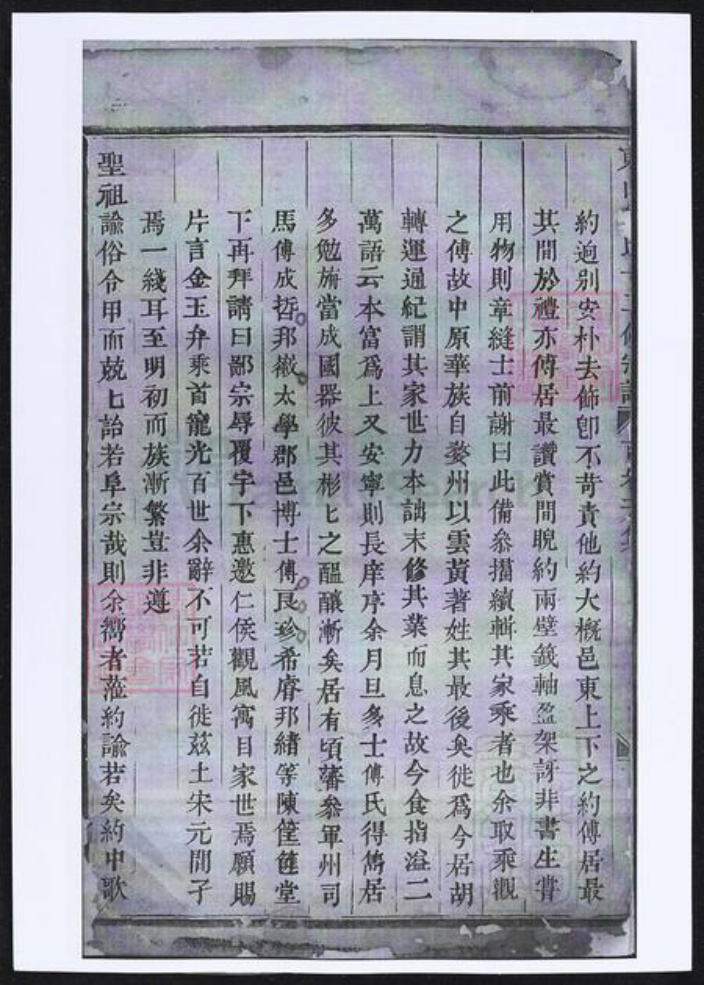 約逈别安朴去飾卽不苛責他約大槪邑東上下之約傅居最
其間於禮亦傅居最讚賞間睨約兩壁籖軸盈架訝非書生嘗
用物則章縫士前謝曰此備叅攟續輯其家乘者也余取乘觀
之傅故中原華族自婺州以雲黃著姓其最後矣徙爲今居胡
轉運通紀謂其家世力本詘末修其業而息之故今食指溢二
萬語云本富爲上又安寧則長庠序余月旦多士傅氏得雋居
多勉旃當成國器彼其彬匕之醞釀漸矣居有頃藩叅軍州司
馬傅成哲邦徹太學郡邑博士傅艮珍希濬邦緒等陳筐篚堂
下再拜請曰鄙宗辱覆宇下惠邀仁侯觀風寓目家世焉願賜
片言金玉弁乘首寵光百世余辭不可若自徙茲土宋元間子
焉一綫耳至明初而族漸繁豈非遵
聖祖諭俗令甲而兢匕詒若阜宗哉則余嚮者蒞約諭若矣約中歌